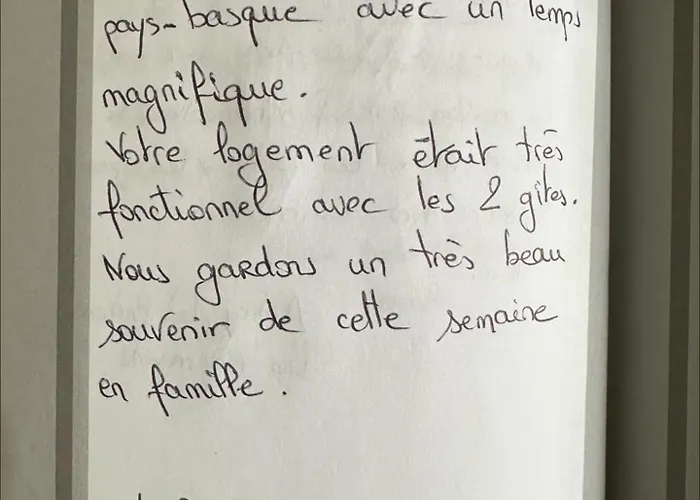 pays-basque avec un temps
magnifique.
Votre logement était très
fonctionnel avec les 2 gîtes.
Nous gardons un très beau
souvenir de cette semaine
en famille.